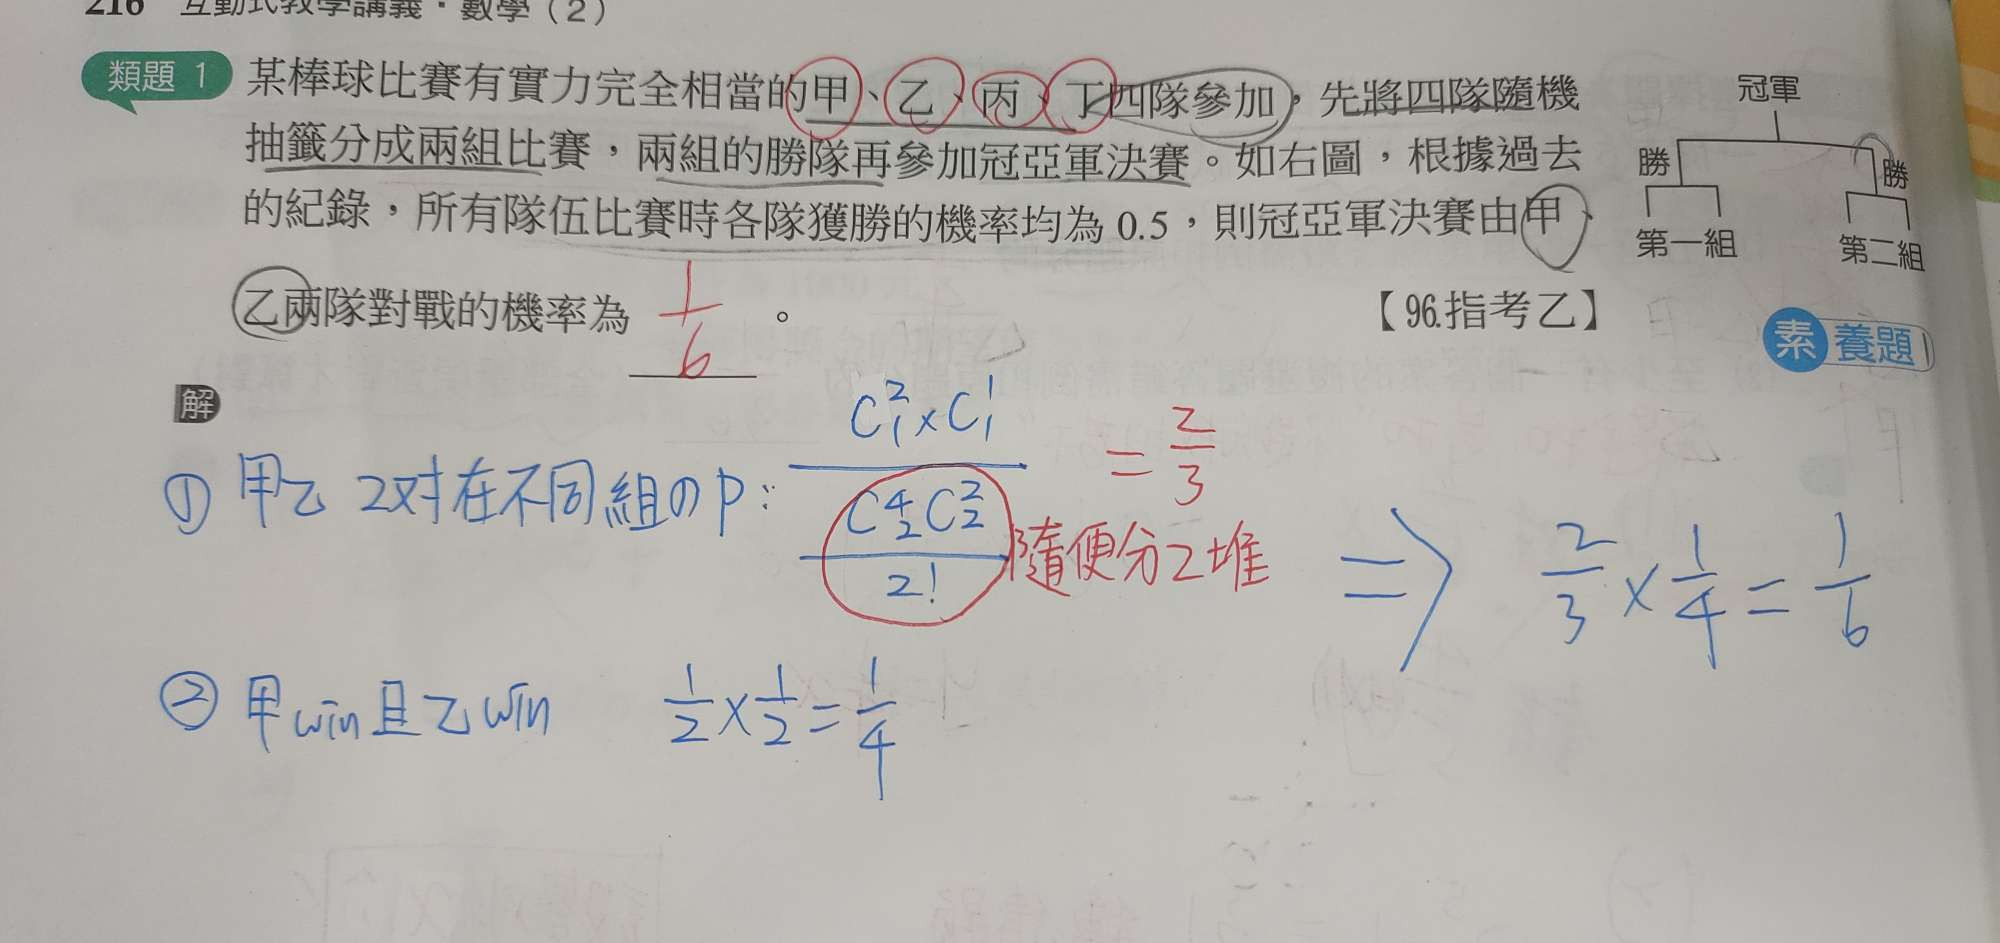 216 互動式教學講義．數學（2）
類題 1 某棒球比賽有實力完全相當的甲、乙、丙、丁四隊參加，先將四隊隨機
抽籤分成兩組比賽，兩組的勝隊再參加冠亞軍決賽。如右圖，根據過去
的紀錄，所有隊伍比賽時各隊獲勝的機率均為 0.5，則冠亞軍決賽由甲、
乙兩隊對戰的機率為 1/6 。
【96.指考乙】
冠軍
勝 勝
第一組 第二組
素養題
解
① 甲乙 2対在不同組の P: (C²₁×C¹₁)/(C⁴₂C²₂/2!) = 2/3
隨便分2堆
⇒ 2/3 × 1/4 = 1/6
② 甲win且乙win 1/2 × 1/2 = 1/4